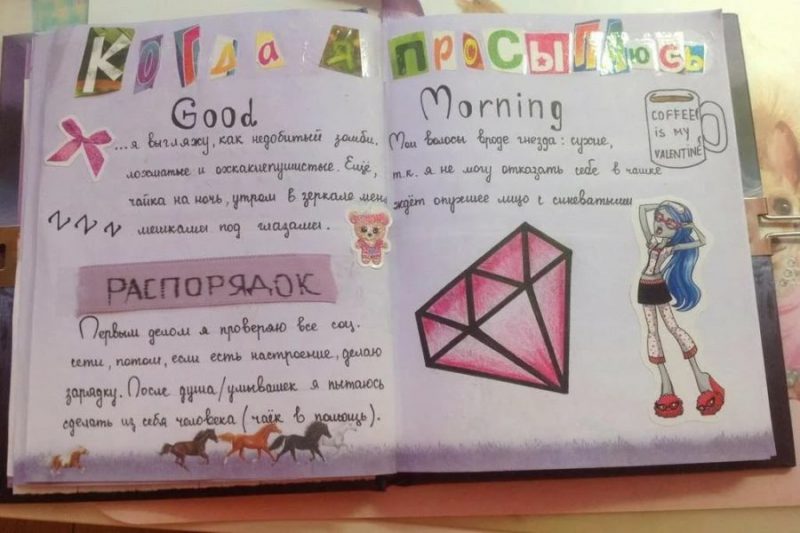 Когда я просыпаюсь
Good Morning
...я выгляжу, как недобитый зомби. Мои волосы вроде гнезда: сухие,
лохматые и охкакиепушистые. Ещё, т.к. я не могу отказать себе в чашке
чайка на ночь, утром в зеркале меня ждёт опухшее лицо с синеватыми
мешками под глазами.
ZZZ
COFFEE
IS MY
VALENTINE
РАСПОРЯДОК
Первым делом я проверяю все соц.
сети, потом, если есть настроение, делаю
зарядку. После душа/умывашек я пытаюсь
сделать из себя человека (чаёк в помощь).